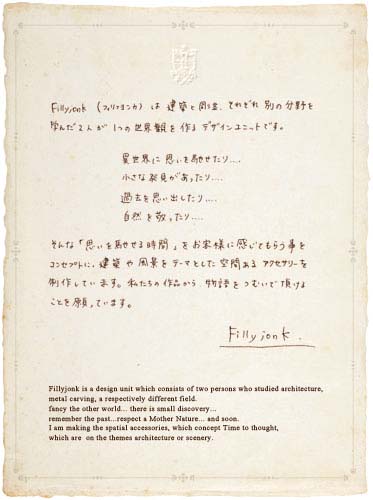 Fillyjonk (フィリフヨンカ) は 建築と彫金、それぞれ 別の分野を
学んだ2人が 1つの世界観を作る デザインユニットです。
異世界に思いを馳せたり....
小さな発見があったり....
過去を思い出したり....
自然を敬ったり....
そんな「思いを馳せる時間」をお客様に感じてもらう事を
コンセプトに、建築や風景をテーマとした空間ある アクセサリーを
制作しています。私たちの作品から 物語をつむいで頂ける
ことを願っています。
Fillyjonk.
Fillyjonk is a design unit which consists of two persons who studied architecture,
metal carving, a respectively different field.
fancy the other world... there is small discovery...
remember the past...respect a Mother Nature... and soon.
I am making the spatial accessories, which concept Time to thought,
which are on the themes architecture or scenery.